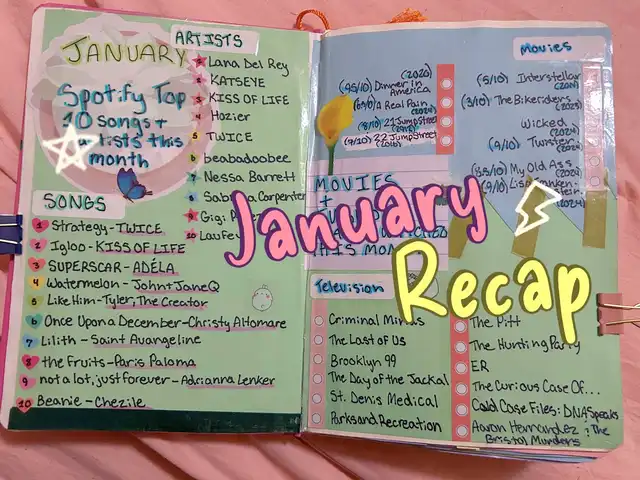 JANUARY
Spotify Top
10 songs +
this
month
ARTISTS
1 Lana Del Rey
2 KATSEYE
3 KISS OF LIFE
4 Hozier
5 TWICE
6 beabadoobee
7 Nessa Barrett
8 Carpenter
9 Gigi
10 Laufey
SONGS
1 Strategy - TWICE
2 Igloo - KISS OF LIFE
3 SUPERSCAR - ADÉLA
4 Watermelon - John+JaneQ
5 Like Him - Tyler, The Creator
6 Once Upon a December - Christy Altomare
7 Lilith - Saint Avangeline
8 the Fruits - Paris Paloma
9 not a lot, just forever - Adrianna Lenker
10 Beanie - Chezile
(2020)
(9.5/10) Dinner in
America
A Real Pain
21 Jump Street
22 Jump Street
MOVIES
+
THIS
Movies
(5/10) Interstellar
(3/10) The Bikeriders
(2023)
Wicked
(2024)
(9/10) Twisters
(2024)
My Old Ass
(9/10)
(2024)
January
Recap
Television
Criminal Minds
The Last of Us
Brooklyn 99
The Day of the Jackal
St. Denis Medical
Parks and Recreation
The Pitt
The Hunting Party
ER
The Curious Case Of...
Cold Case Files: DNA Speaks
Aaron Hernandez: The
Bristol Murders